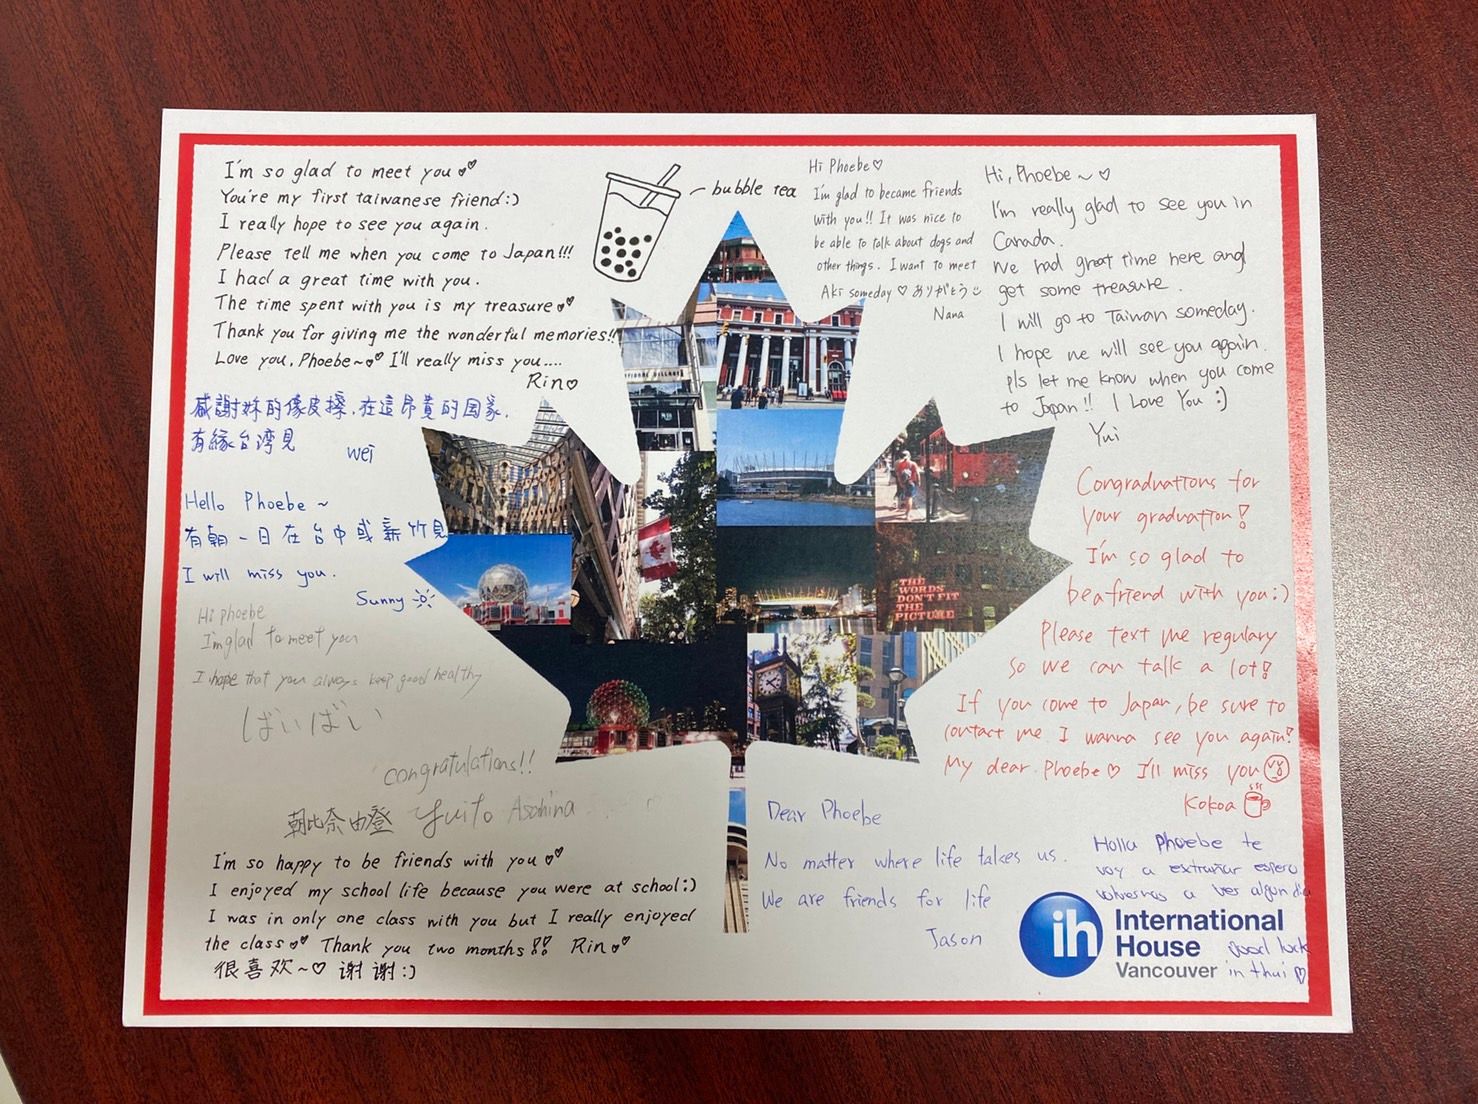 I'm so glad to meet you
You're my first taiwanese friend:)
I really hope to see you again.
Please tell me when you come to Japan!!!
I had a great time with you.
The time spent with you is my treasure
Thank you for giving me the wonderful memories!!
Love you, Phoebe~ I'll really miss you....
Rin
bubble tea
Hi Phoebe♡
I'm glad to became friends
with you!! It was nice to
be able to talk about dogs and
other things. I want to meet
Aki someday♡ ありがとう
Nana
Hi, Phoebe~♡
I'm really glad to see you in
Canada.
We had great time here and
get some treasure.
I will go to Taiwan someday.
I hope we will see you again.
pls let me know when you come
to Japan!! I Love You :)
Yui
感謝妳的像皮擦,在這昂貴的国家,
有緣台湾見
wei
Hello Phoebe~
有朝一日在台中或新竹見
I will miss you.
Sunny
Hi phoebe
I'm glad to meet you
I hope that you always keep good healthy
ばいばい
congratulations!!
朝比奈由登 Yuito Asahina
I'm so happy to be friends with you
I enjoyed my school life because you were at school:)
I was in only one class with you but I really enjoyed
the class Thank you two months!! Rin
很喜欢~♡ 谢谢:)
Congraduations for
your graduation!
I'm so glad to
be a friend with you:)
Please text me regulary
so we can talk a lot!
If you come to Japan, be sure to
contact me. I wanna see you again!
My dear. Phoebe♡ I'll miss you
Kokoa
Dear Phoebe
No matter where life takes us.
We are friends for life
Jason
Holla Phoebe te
voy a extrañar espero
volvernos a ver algun dia
good luck
in thai ♡
THE
WORDS
DON'T FIT
THE
PICTURE
ih International
House
Vancouver